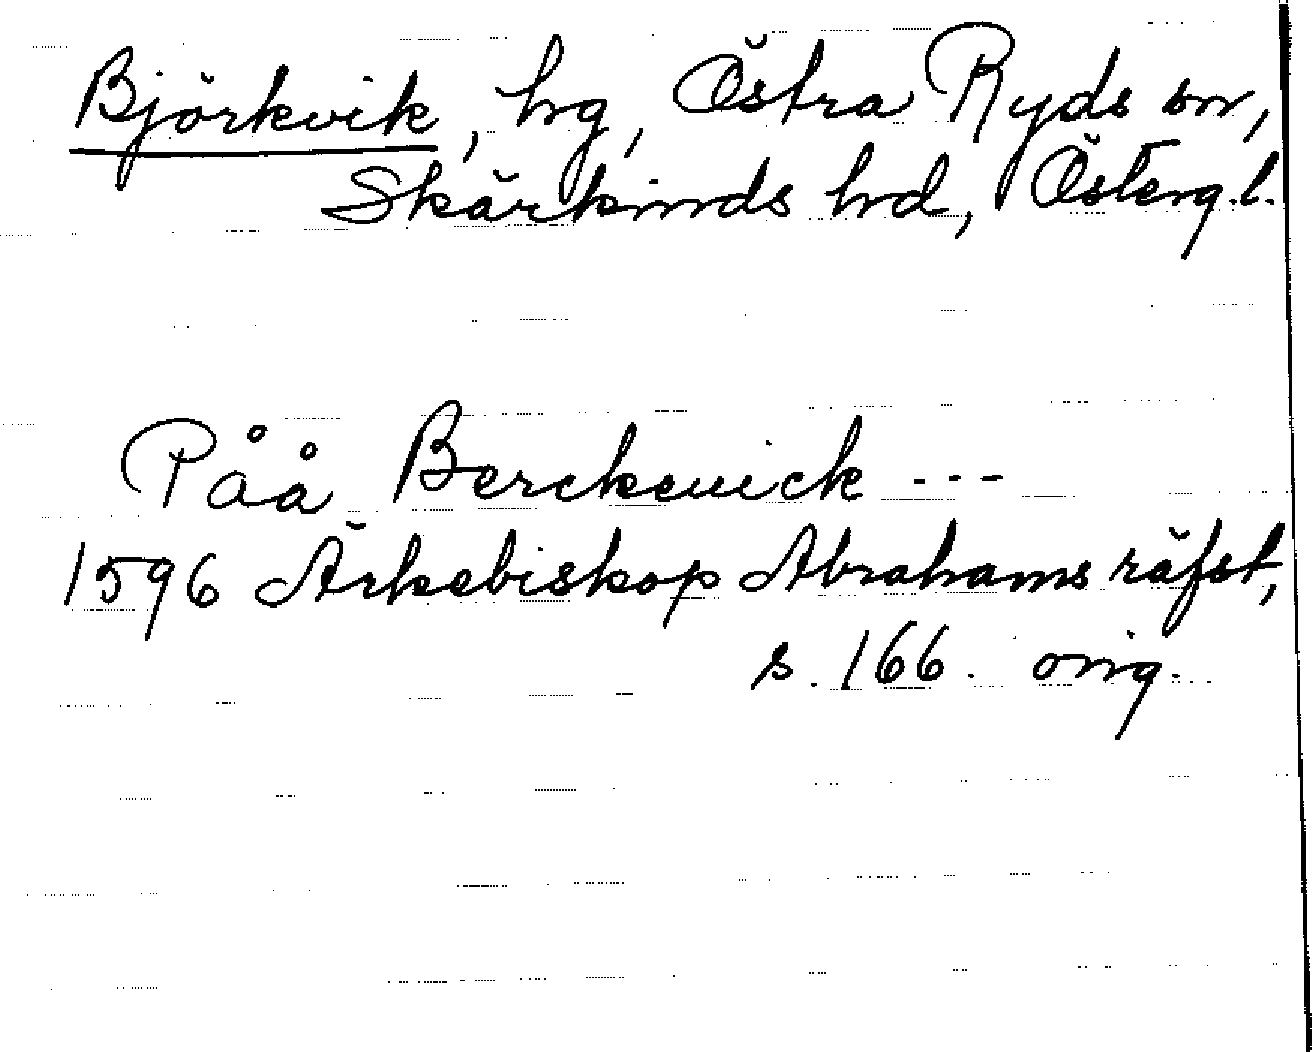 Björkvik, hg, Östra Ryds sn,
Skärkinds hd, Österg.l.
Påå Berckeuick ---
1596 Ärkebiskop Abrahams räfst,
s. 166. orig.